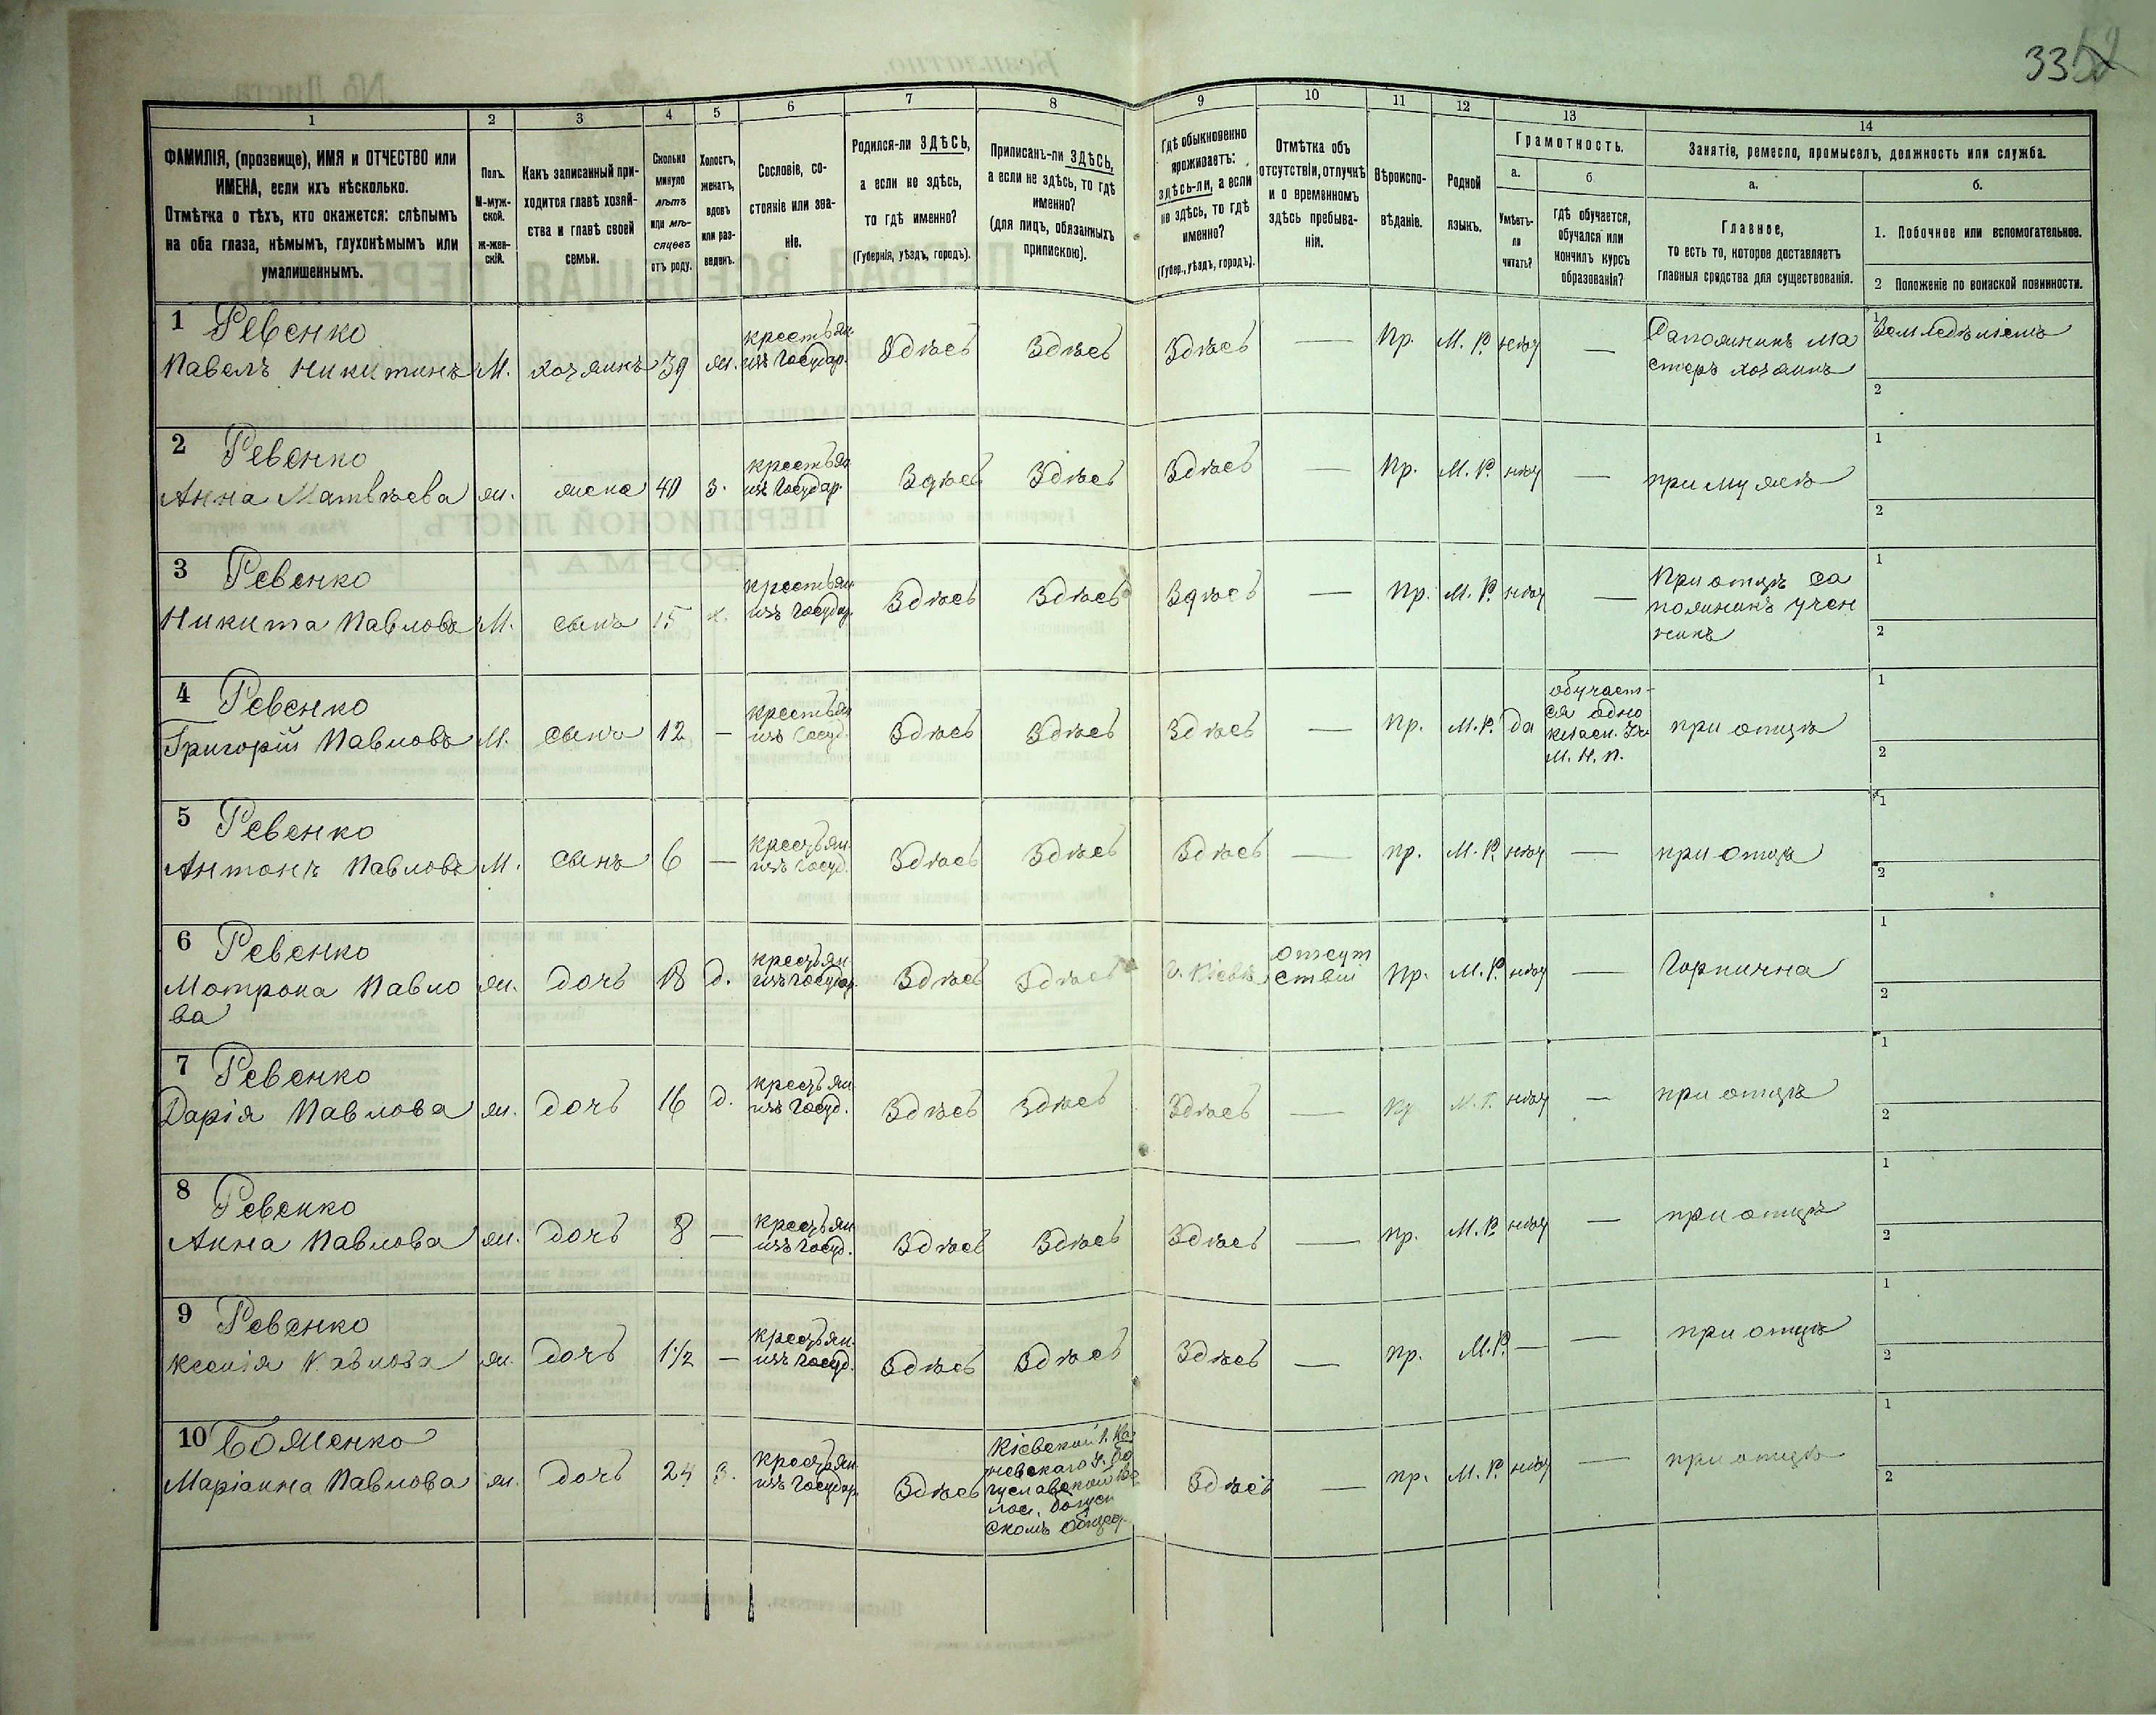 33
1 2 3 4 5 6 7 8 9 10 11 12 13 14
ФАМИЛІЯ, (прозвище), ИМЯ и ОТЧЕСТВО или
ИМЕНА, если ихъ нѣсколько.
Отмѣтка о тѣхъ, кто окажется: слѣпымъ
на оба глаза, нѣмымъ, глухонѣмымъ или
умалишеннымъ.
Полъ.
М-муж-
ской.
Ж-жен-
скій.
Какъ записанный при-
ходится главѣ хозяй-
ства и главѣ своей
семьи.
Сколько
минуло
лѣтъ
или мѣ-
сяцевъ
отъ роду.
Холостъ,
женатъ,
вдовъ
или раз-
веденъ.
Сословіе, со-
стояніе или зва-
ніе.
Родился-ли ЗДѢСЬ,
а если не здѣсь,
то гдѣ именно?
(Губернія, уѣздъ, городъ).
Приписанъ-ли ЗДѢСЬ,
а если не здѣсь, то гдѣ
именно?
(для лицъ, обязанныхъ
припискою).
Гдѣ обыкновенно
проживаетъ:
здѣсь-ли, а если
не здѣсь, то гдѣ
именно?
(Губер., уѣздъ, городъ).
Отмѣтка объ
отсутствіи, отлучкѣ
и о временномъ
здѣсь пребыва-
ніи.
Вѣроиспо-
вѣданіе.
Родной
языкъ.
Грамотность.
а.
Умѣетъ-
ли
читать?
б
гдѣ обучается,
обучался или
кончилъ курсъ
образованія?
Занятіе, ремесло, промыселъ, должность или служба.
а.
Главное,
то есть то, которое доставляетъ
главныя средства для существованія.
б.
1. Побочное или вспомогательное.
2 Положеніе по воинской повинности.
1 Ревенко
Павелъ Никитинъ М. хозяинъ 39 ж. крестьян. изъ Государ. Здѣсь Здѣсь Здѣсь — Пр. М. Р. нѣт — Сапожникъ ма
стеръ хозяинъ
1 Земледѣліемъ
2
2 Ревенко
Анна Матвѣева ж. жена 40 з. крестьян изъ Государ. Здѣсь Здѣсь Здѣсь — Пр. М. Р. нѣт — при мужѣ
1
2
3 Ревенко
Никита Павловъ М. сынъ 15 х. крестьян изъ Государ. Здѣсь Здѣсь Здѣсь — Пр. М. Р. нѣт — При отцѣ са
пожникъ учен
никъ
1
2
4 Ревенко
Григорій Павловъ М. сынъ 12 — крестьян изъ Госуд. Здѣсь Здѣсь Здѣсь — Пр. М. Р. да
обучает-
ся одно
М. Н. П.
при отцѣ
1
2
5 Ревенко
Антонъ Павловъ М. сынъ 6 — крестьян. изъ Госуд. Здѣсь Здѣсь Здѣсь — пр. М. Р. нѣт — при отцѣ
1
2
6 Ревенко
Мотрона Павло
ва
ж. дочь 18 д. крестьян изъ Государ. Здѣсь Здѣсь г. Кіевѣ
отсут
ствіи
пр. М. Р. нѣт — Горнична
1
2
7 Ревенко
Дарія Павлова ж. дочь 16 д. крестьян. изъ Госуд. Здѣсь Здѣсь Здѣсь — пр М. Р. нѣт — при отцѣ
1
2
8 Ревенко
Анна Павлова ж. дочь 8 — крестьян изъ Госуд. Здѣсь Здѣсь Здѣсь — пр. М. Р. нѣт — при отцѣ
1
2
9 Ревенко
Ксенія Павлова ж. дочь 1½ — крестьян. изъ Госуд. Здѣсь Здѣсь Здѣсь — пр. М. Р. — — при отцѣ
1
2
10 Боженко
Маріанна Павлова ж. дочь 24 з. крестьян изъ Государ. Здѣсь
Кіевской г. Ка
невскаго у. Бо
гуславской во
лос. Богусл
скомъ общес.
Здѣсь — пр. М. Р. нѣт — при отцѣ
1
2